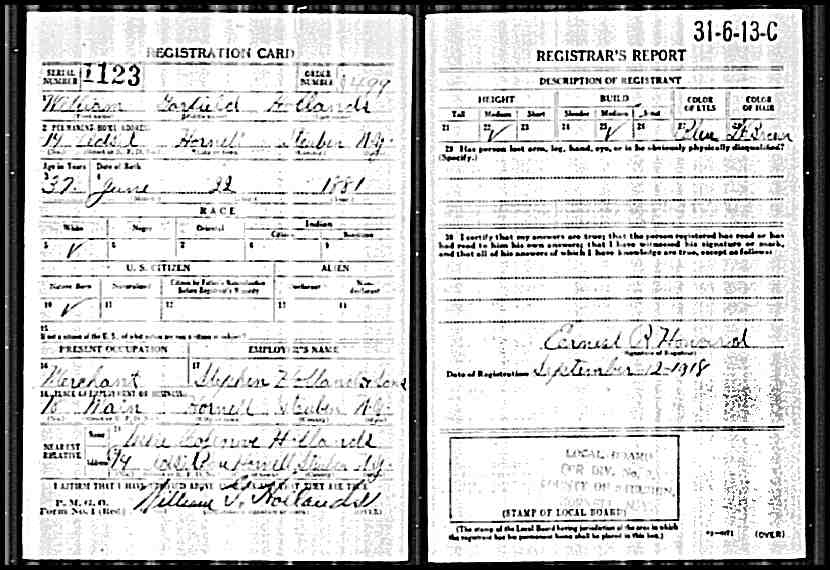 REGISTRATION CARD
SERIAL NUMBER 1123 ORDER NUMBER
William Garfield Hollands
2 PERMANENT HOME ADDRESS
Hornell Steuben N.Y.
Age in Years Date of Birth
37 June 22 1881
RACE
White Negro Oriental Indian
Citizen Noncitizen
5 ✓ 6 7 8 9
U. S. CITIZEN ALIEN
Native Born Naturalized Citizen by Father's Naturalization Before Registrant's Majority Declarant Non-declarant
10 ✓ 11 12 13 14
15
If not a citizen of the U. S., of what nation are you a citizen or subject?
PRESENT OCCUPATION EMPLOYER'S NAME
16 Merchant 17 Stephen Hollands Sons
18 PLACE OF EMPLOYMENT OR BUSINESS
Main Hornell Steuben N.Y.
NEAREST RELATIVE
Name Hollands
Address Hornell Steuben N.Y.
I AFFIRM THAT I HAVE VERIFIED ABOVE ANSWERS AND THAT THEY ARE TRUE
P. M. G. O.
Form No. 1 (Red) William G. Hollands (OVER)
31-6-13-C
REGISTRAR'S REPORT
DESCRIPTION OF REGISTRANT
HEIGHT BUILD COLOR OF EYES COLOR OF HAIR
Tall Medium Short Slender Medium Stout
21 22 ✓ 23 24 25 ✓ 26 27 Blue 28 Brown
29 Has person lost arm, leg, hand, eye, or is he obviously physically disqualified?
(Specify.)
30 I certify that my answers are true; that the person registered has read or has
had read to him his own answers; that I have witnessed his signature or mark,
and that all of his answers of which I have knowledge are true, except as follows:
Ernest R Howard
(Signature of Registrar)
Date of Registration September 12-1918
LOCAL BOARD
FOR DIV. No.
COUNTY OF STEUBEN,
HORNELL, N.Y.
(STAMP OF LOCAL BOARD)
(The stamp of the Local Board having jurisdiction of the area in which
the registrant has his permanent home shall be placed in this box.)
(OVER)